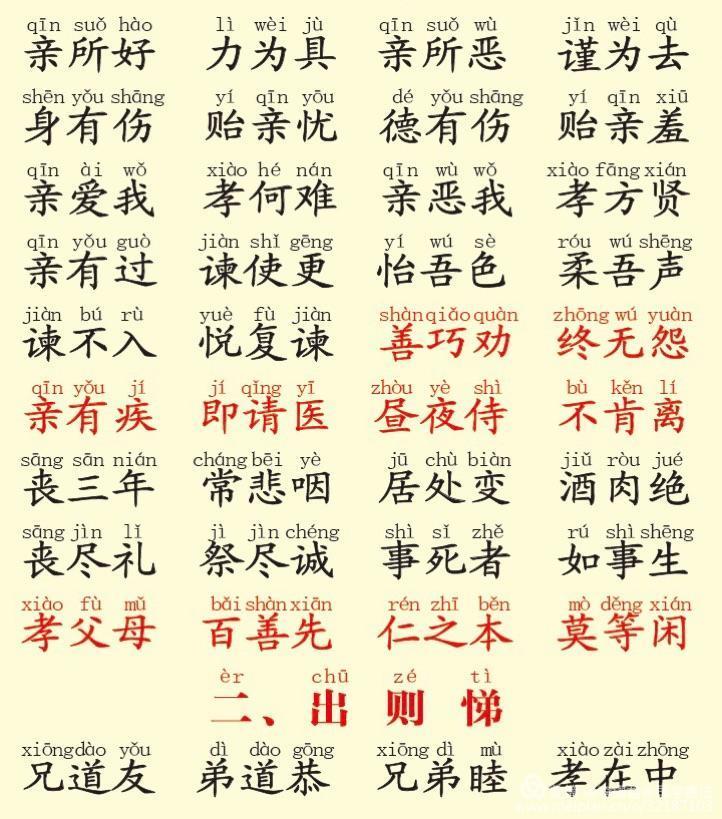 qīn suǒ hào lì wèi jù qīn suǒ wù jǐn wèi qù
亲所好 力为具 亲所恶 谨为去
shēn yǒu shāng yí qīn yōu dé yǒu shāng yí qīn xiū
身有伤 贻亲忧 德有伤 贻亲羞
qīn ài wǒ xiào hé nán qīn wù wǒ xiào fāng xián
亲爱我 孝何难 亲恶我 孝方贤
qīn yǒu guò jiàn shǐ gēng yí wú sè róu wú shēng
亲有过 谏使更 怡吾色 柔吾声
jiàn bú rù yuè fù jiàn shàn qiǎo quàn zhōng wú yuàn
谏不入 悦复谏 善巧劝 终无怨
qīn yǒu jí jí qǐng yī zhòu yè shì bù kěn lí
亲有疾 即请医 昼夜侍 不肯离
sāng sān nián cháng bēi yè jū chù biàn jiǔ ròu jué
丧三年 常悲咽 居处变 酒肉绝
sāng jìn lǐ jì jìn chéng shì sǐ zhě rú shì shēng
丧尽礼 祭尽诚 事死者 如事生
xiào fù mǔ bǎi shàn xiān rén zhī běn mò děng xián
孝父母 百善先 仁之本 莫等闲
èr chū zé tì
二、出则悌
xiōng dào yǒu dì dào gōng xiōng dì mù xiào zài zhōng
兄道友 弟道恭 兄弟睦 孝在中